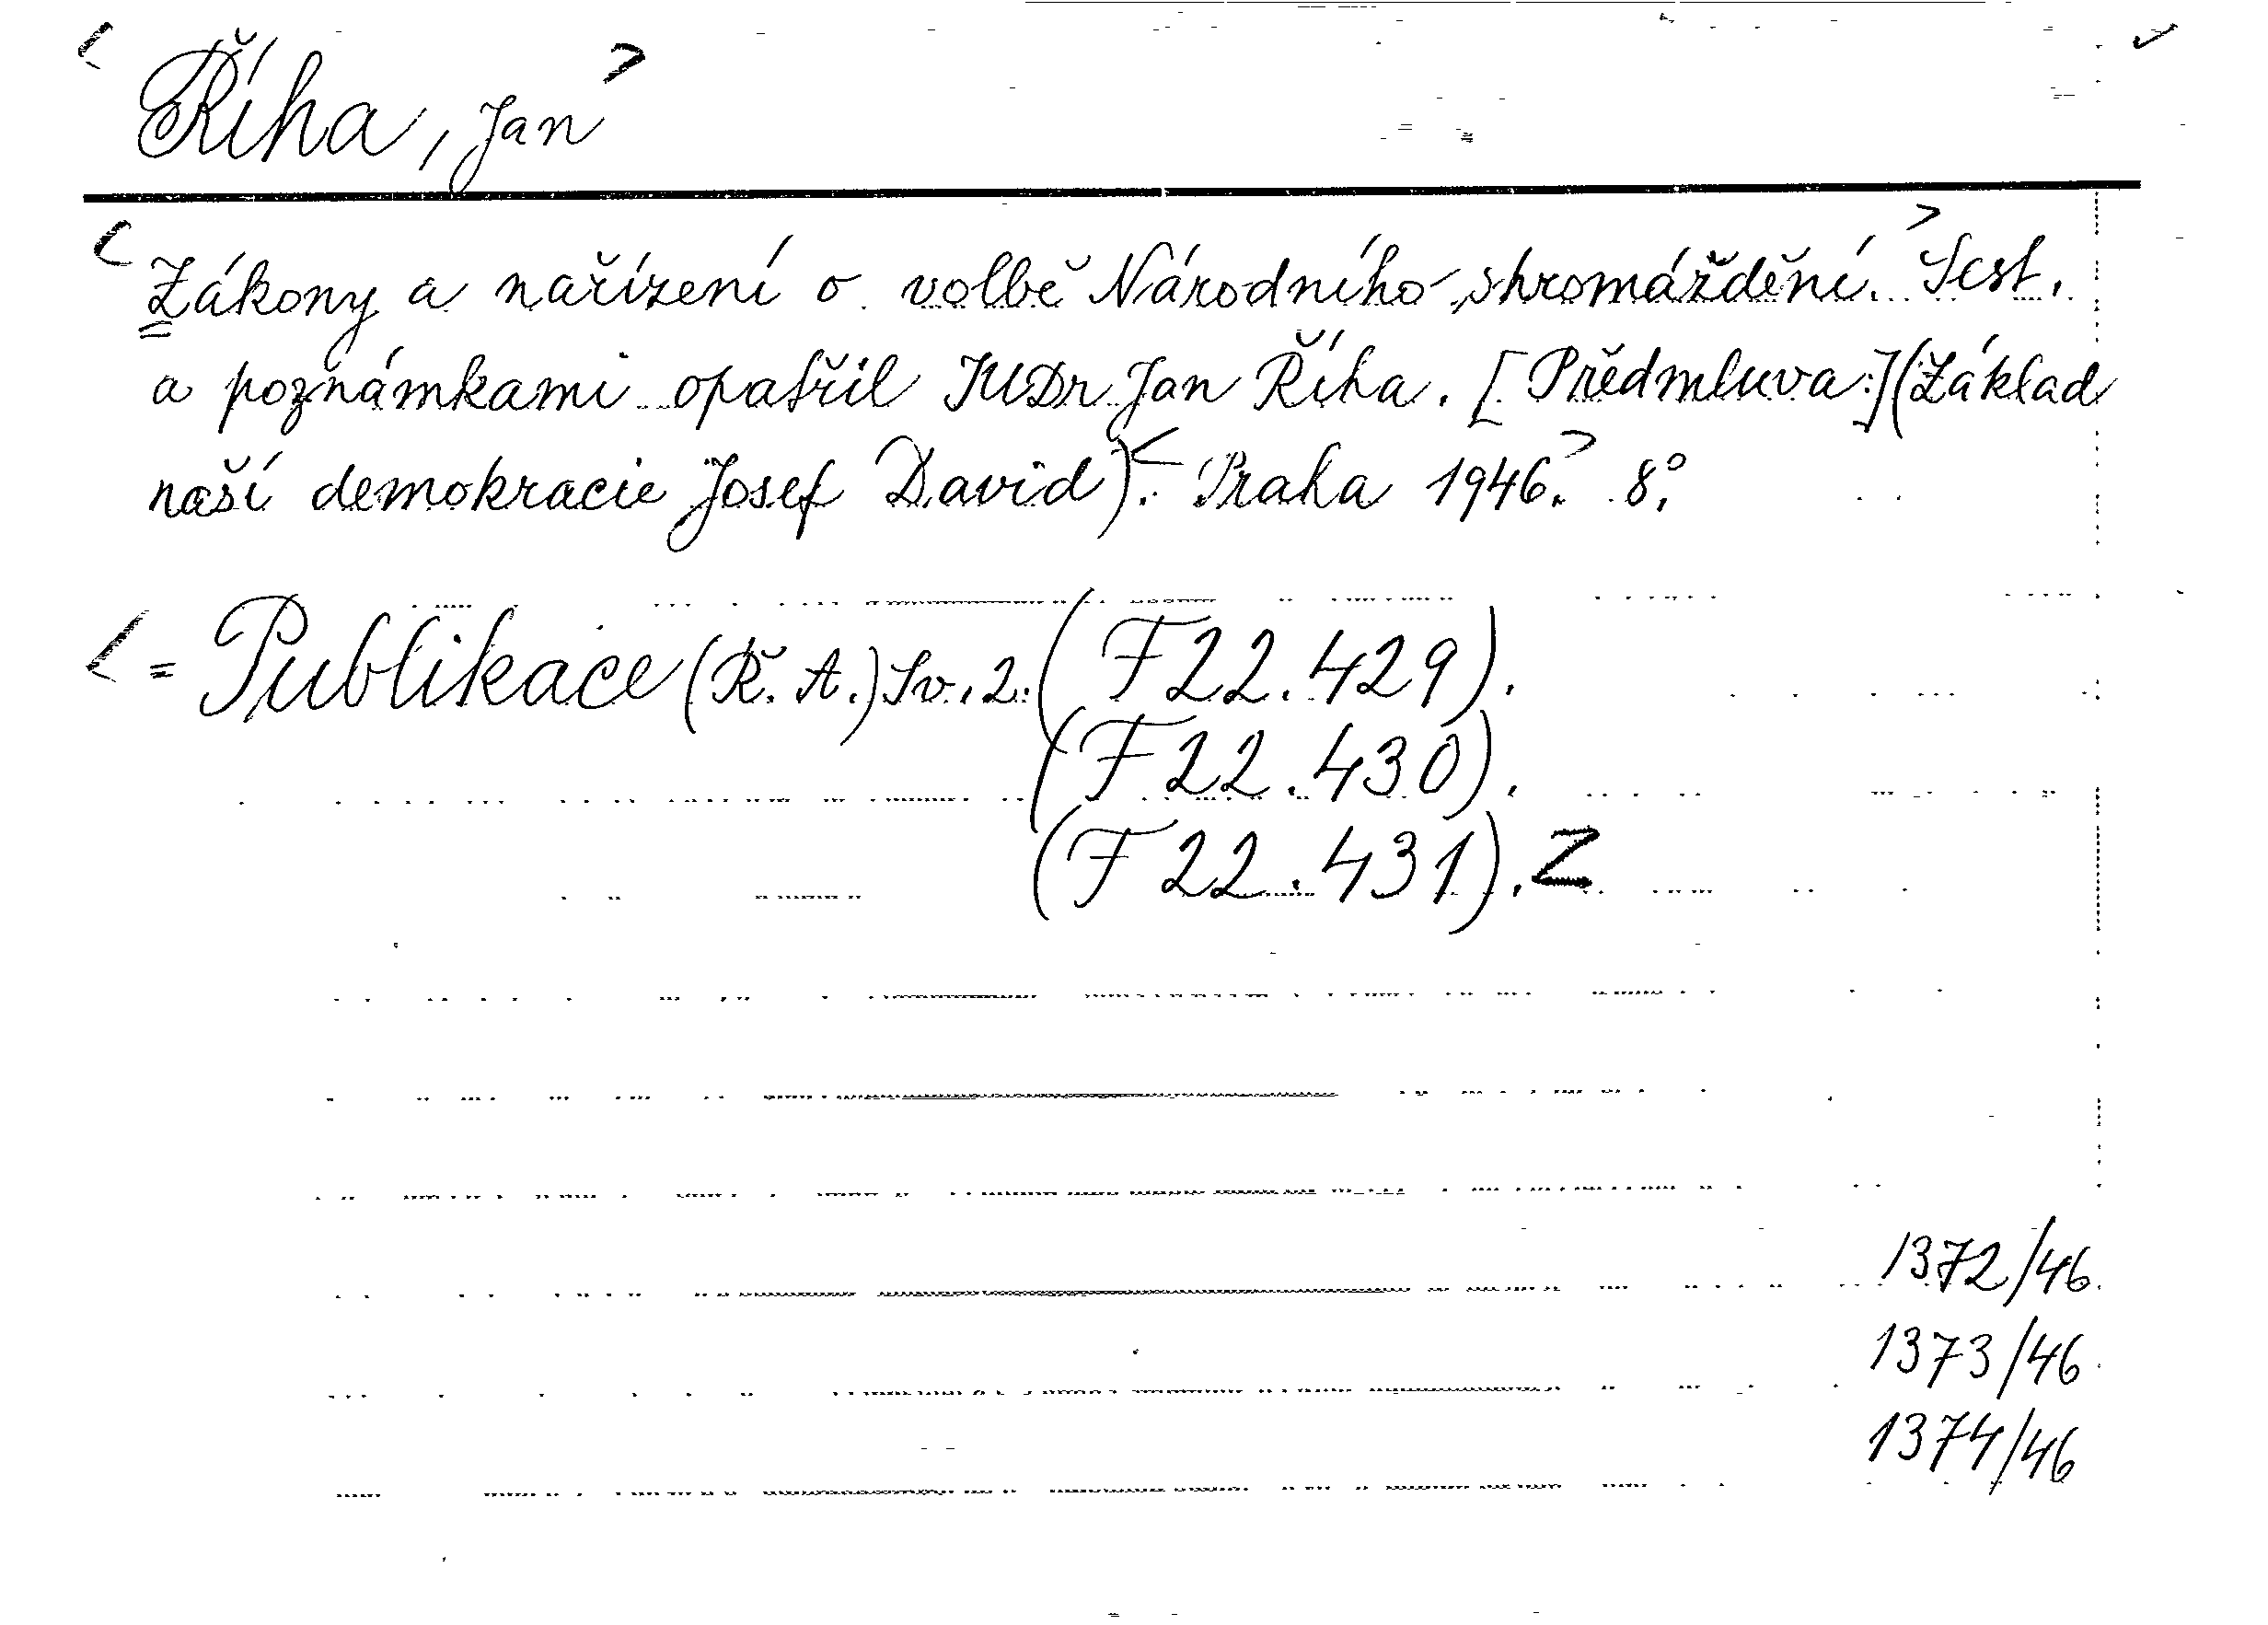 < Říha, Jan >
< Zákony a nařízení o volbě Národního shromáždění. > Sest.
a poznámkami opatřil JUDr Jan Říha. [Předmluva:] (Základ
naší demokracie Josef David). < Praha 1946. > 8°.
< = Publikace (Ř. A.) Sv. 2. (F 22.429).
(F 22.430).
(F 22.431). Z
1372/46
1373/46
1374/46